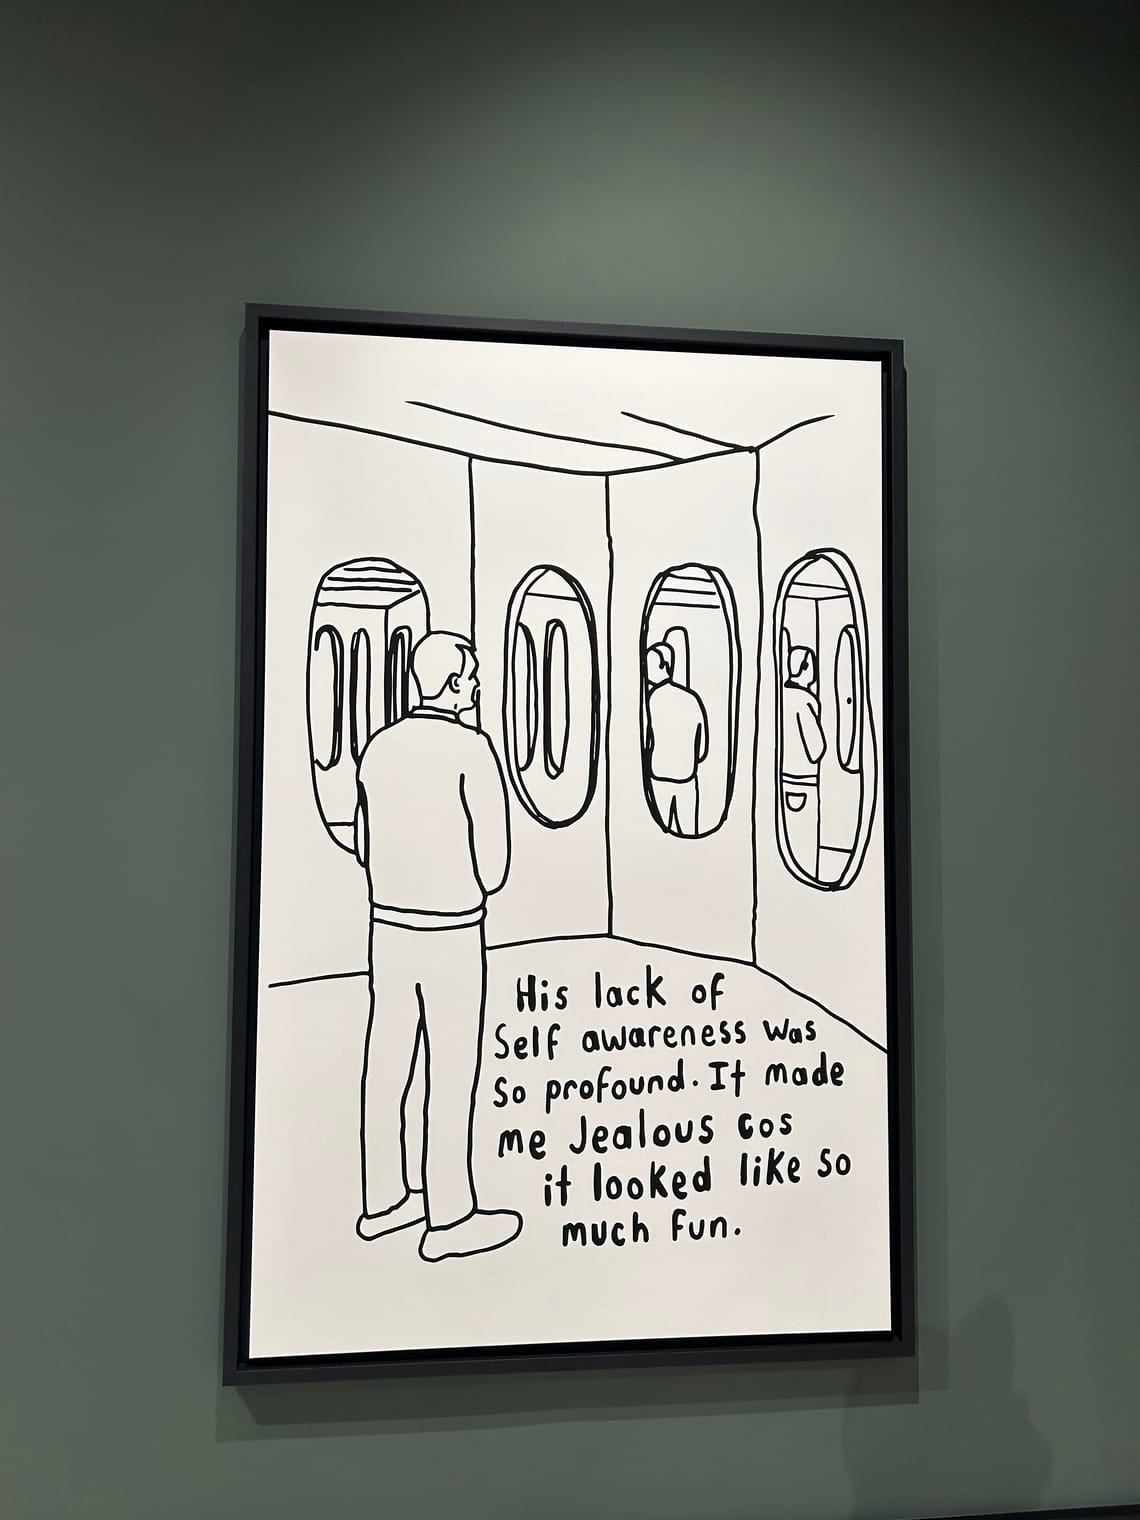 His lack of
Self awareness was
So profound. It made
me Jealous cos
it looked like so
much fun.